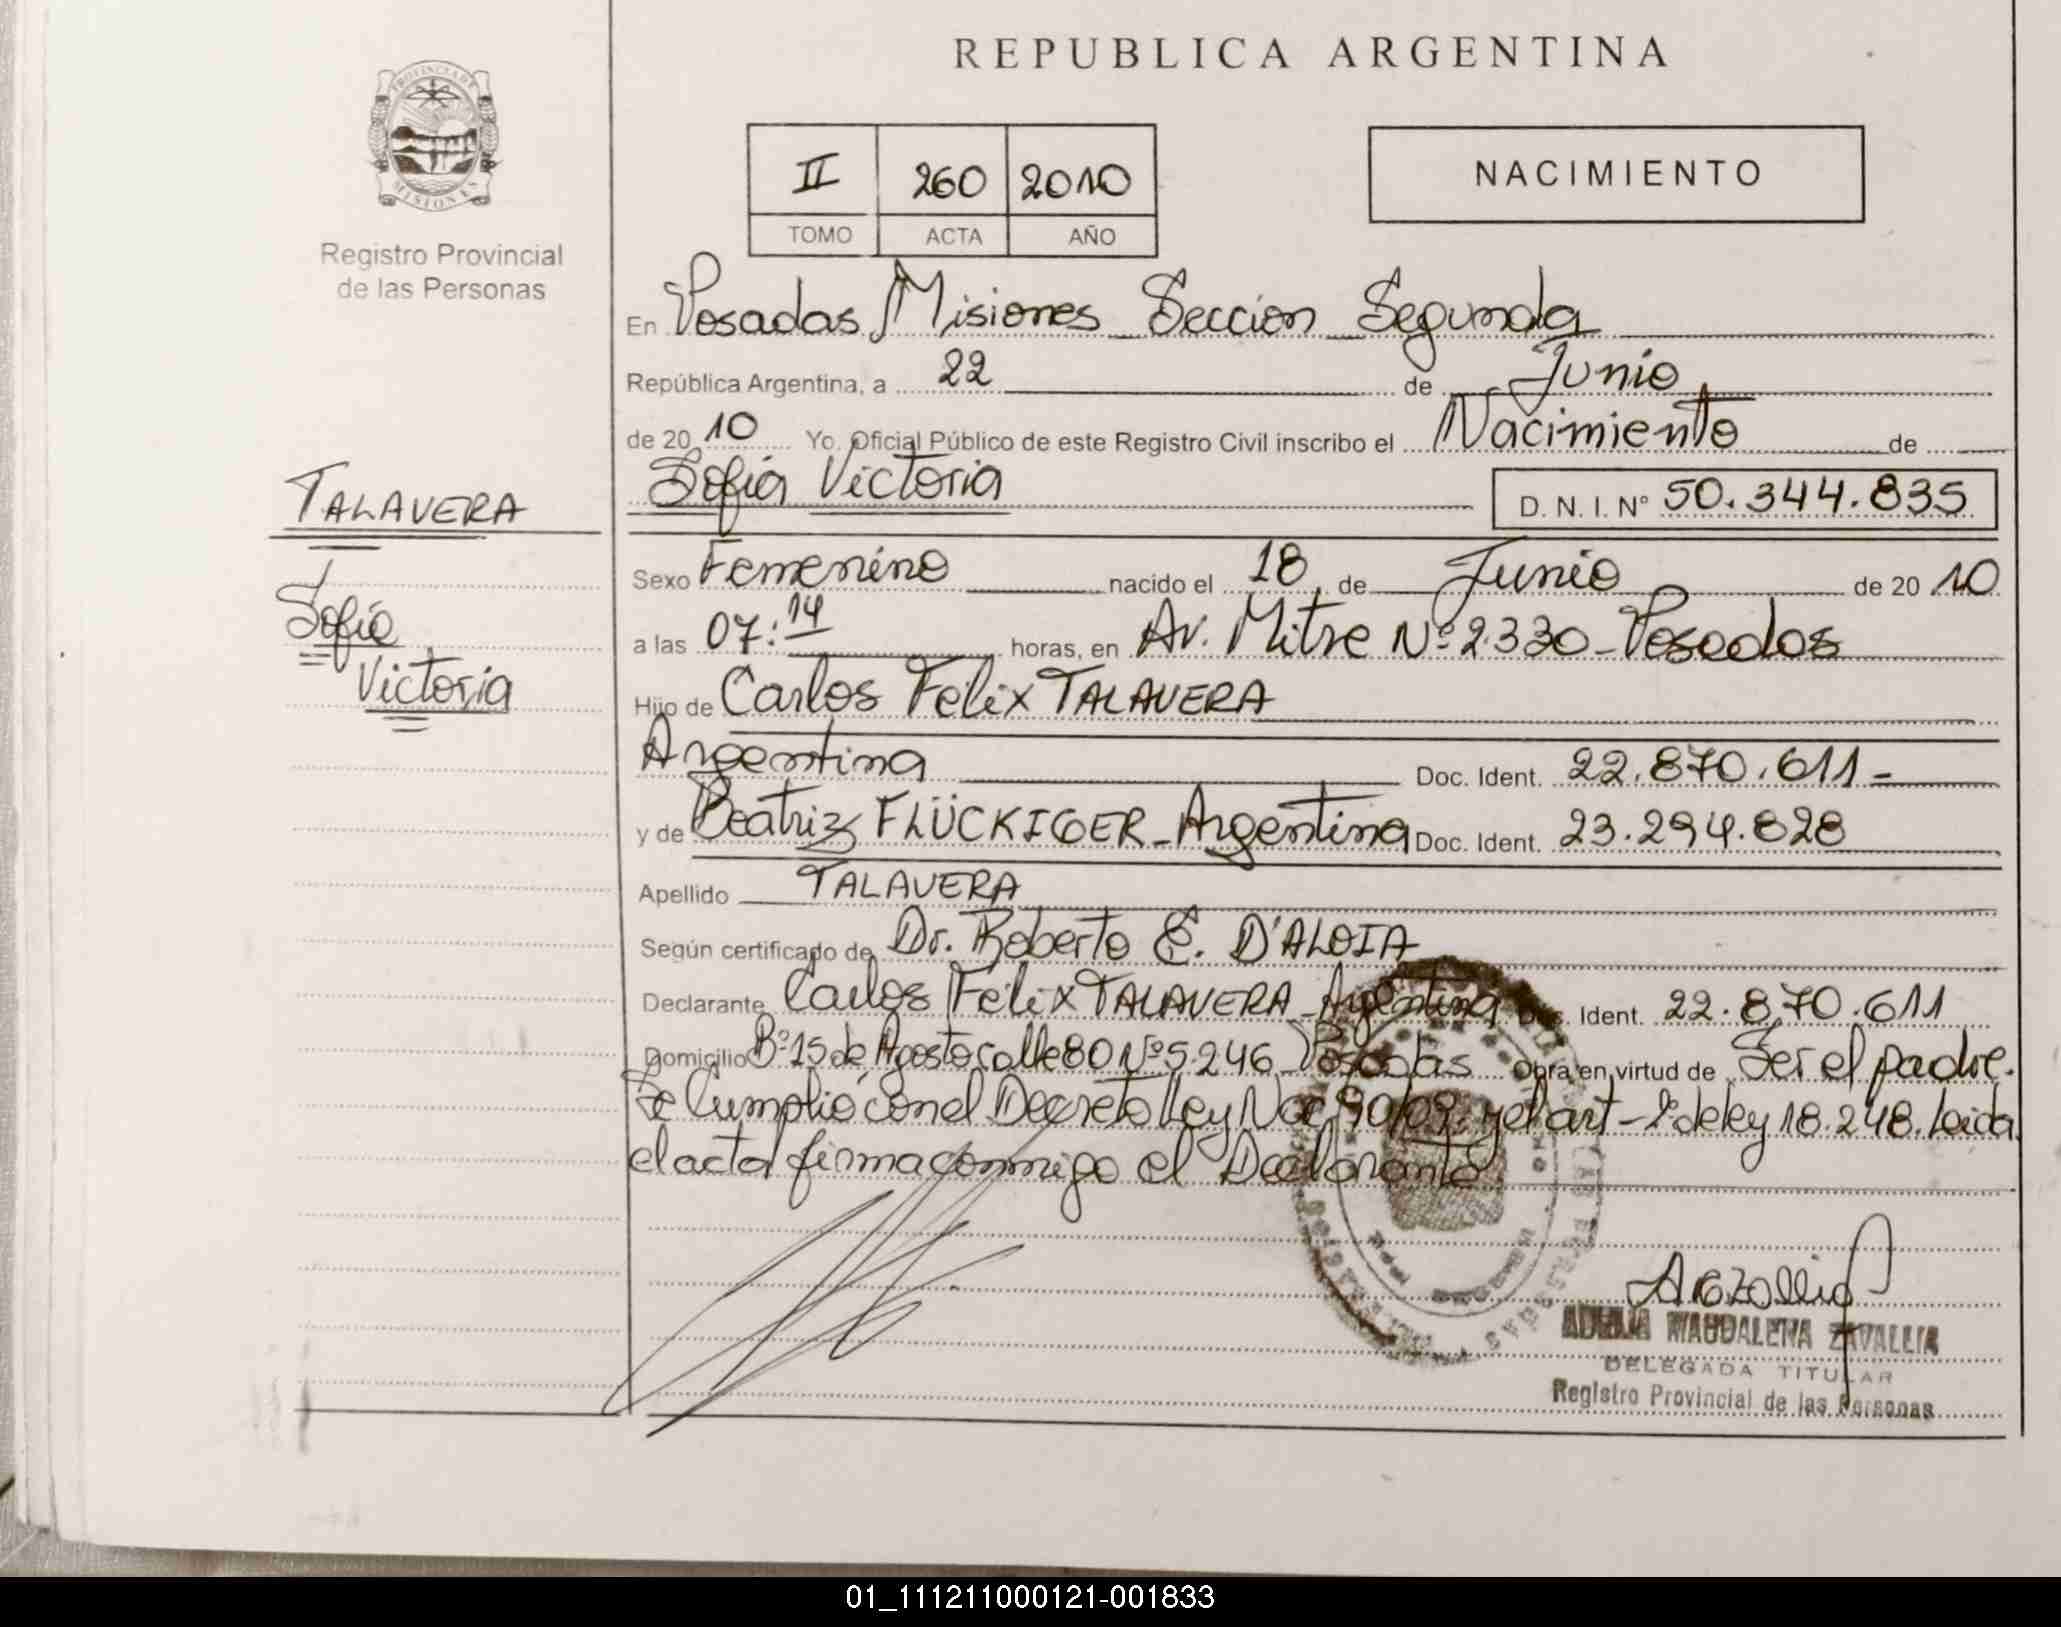 REPUBLICA ARGENTINA
PROVINCIA DE
MISIONES
Registro Provincial
de las Personas
II 260 2010
TOMO ACTA AÑO
NACIMIENTO
En Posadas, Misiones Sección Segunda
República Argentina, a 22 de Junio
de 20 10 Yo, Oficial Público de este Registro Civil inscribo el Nacimiento de
Sofía Victoria D. N. I. Nº 50.344.835
TALAVERA
Sofía
Victoria
Sexo Femenino nacido el 18 de Junio de 20 10
a las 07:14 horas, en Av. Mitre Nº 2330 - Posadas
Hijo de Carlos Felix TALAVERA
Argentina Doc. Ident. 22.870.611-
y de Beatriz FLÜCKIGER - Argentina Doc. Ident. 23.294.828
Apellido TALAVERA
Según certificado de Dr. Roberto E. D'ALOIA
Declarante Carlos Felix TALAVERA - Argentina Doc. Ident. 22.870.611
Domicilio Bº 15 de Agosto calle 80 Nº 5246 Posadas Obra en virtud de Ser el padre.
Se Cumplió con el Decreto Ley Nac. 90/09. y el art - de ley 18.248. Leida
el acta firma conmigo el Declarante
ADELIA MAGDALENA ZAVALLIA
DELEGADA TITULAR
Registro Provincial de las Personas
01_111211000121-001833